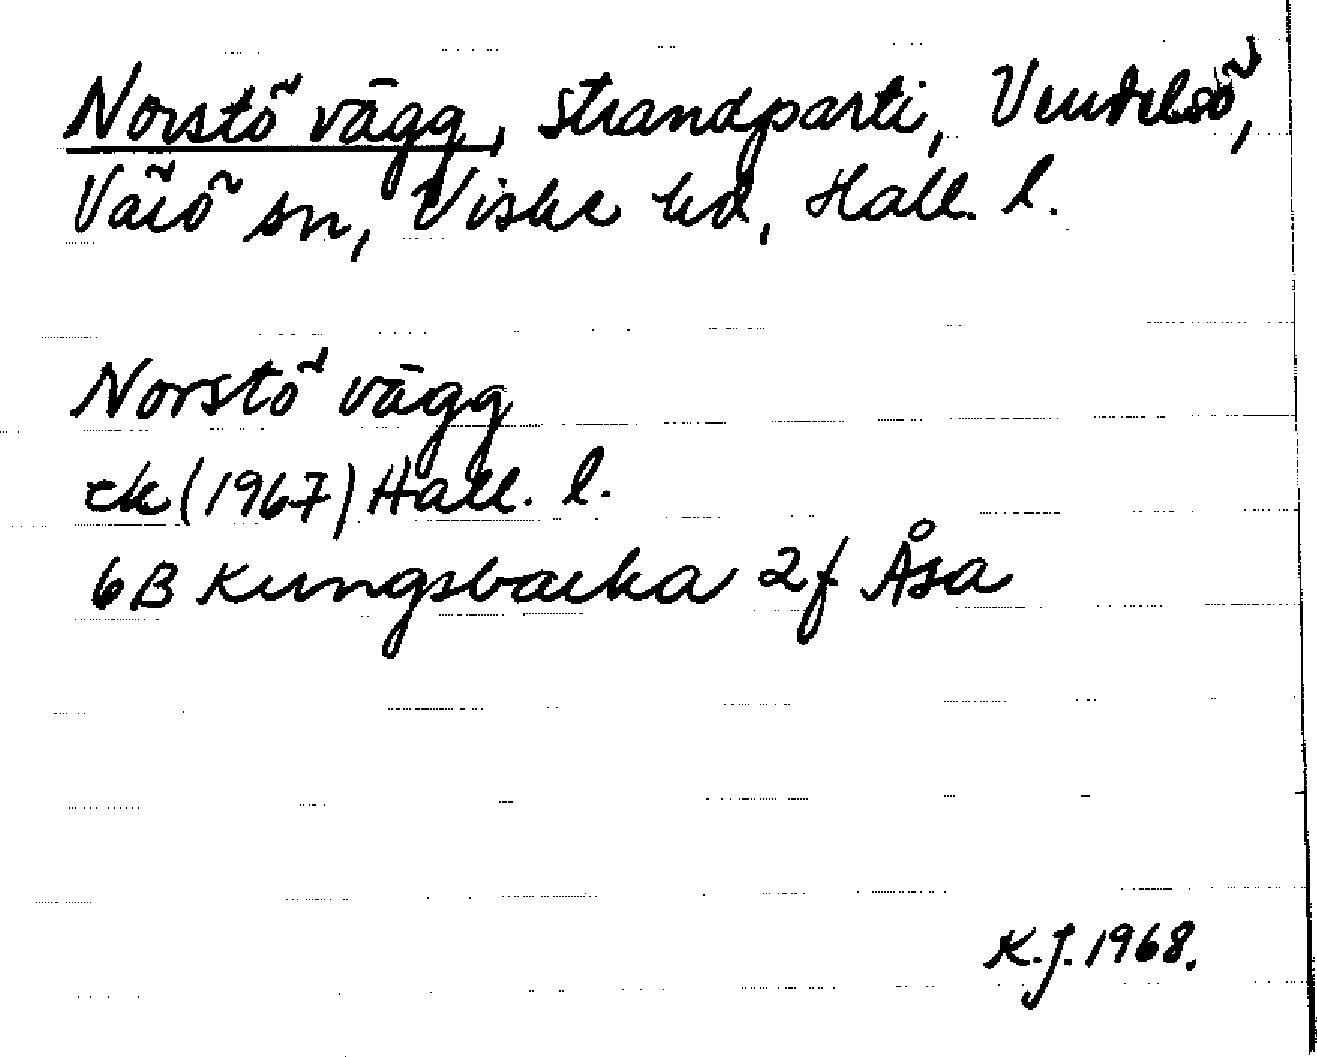 Norstö vägg, strandparti, Vendelsö,
Värö sn, Viske hd, Hall. l.
Norstö vägg
ek (1967) Hall. l.
6B Kungsbacka 2f Åsa
K.J. 1968.